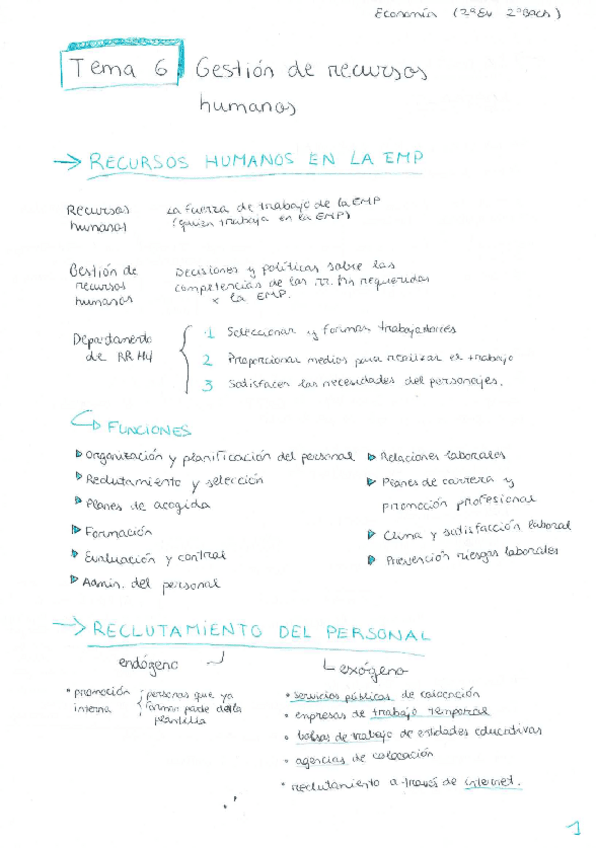 Economía (2ªEv 2ºBach)
Tema 6 Gestión de recursos
humanos
→ RECURSOS HUMANOS EN LA EMP
Recursos
humanos
La fuerza de trabajo de la EMP
(quien trabaja en la EMP)
Gestión de
recursos
humanos
Decisiones y políticas sobre las
competencias de los rr. hh requeridas
x la EMP.
Departamento
de RR HH
1 Seleccionar y formar trabajadores
2 Proporcionar medios para realizar el trabajo
3 Satisfacer las necesidades del personajes.
FUNCIONES
▷ Organización y planificación del personal
▷ Reclutamiento y selección
▷ Planes de acogida
▷ Formación
▷ Evaluación y control
▷ Admin. del personal
▷ Relaciones laborales
▷ Planes de carrera y
promoción profesional
▷ Clima y satisfacción laboral
▷ Prevención riesgos laborales
→ RECLUTAMIENTO DEL PERSONAL
endógeno
• promoción
interna
personas que ya
forman parte de la
plantilla
exógeno
• servicios públicos de colocación
• empresas de trabajo temporal
• bolsas de trabajo de entidades educativas
• agencias de colocación
• reclutamiento a través de internet.
1